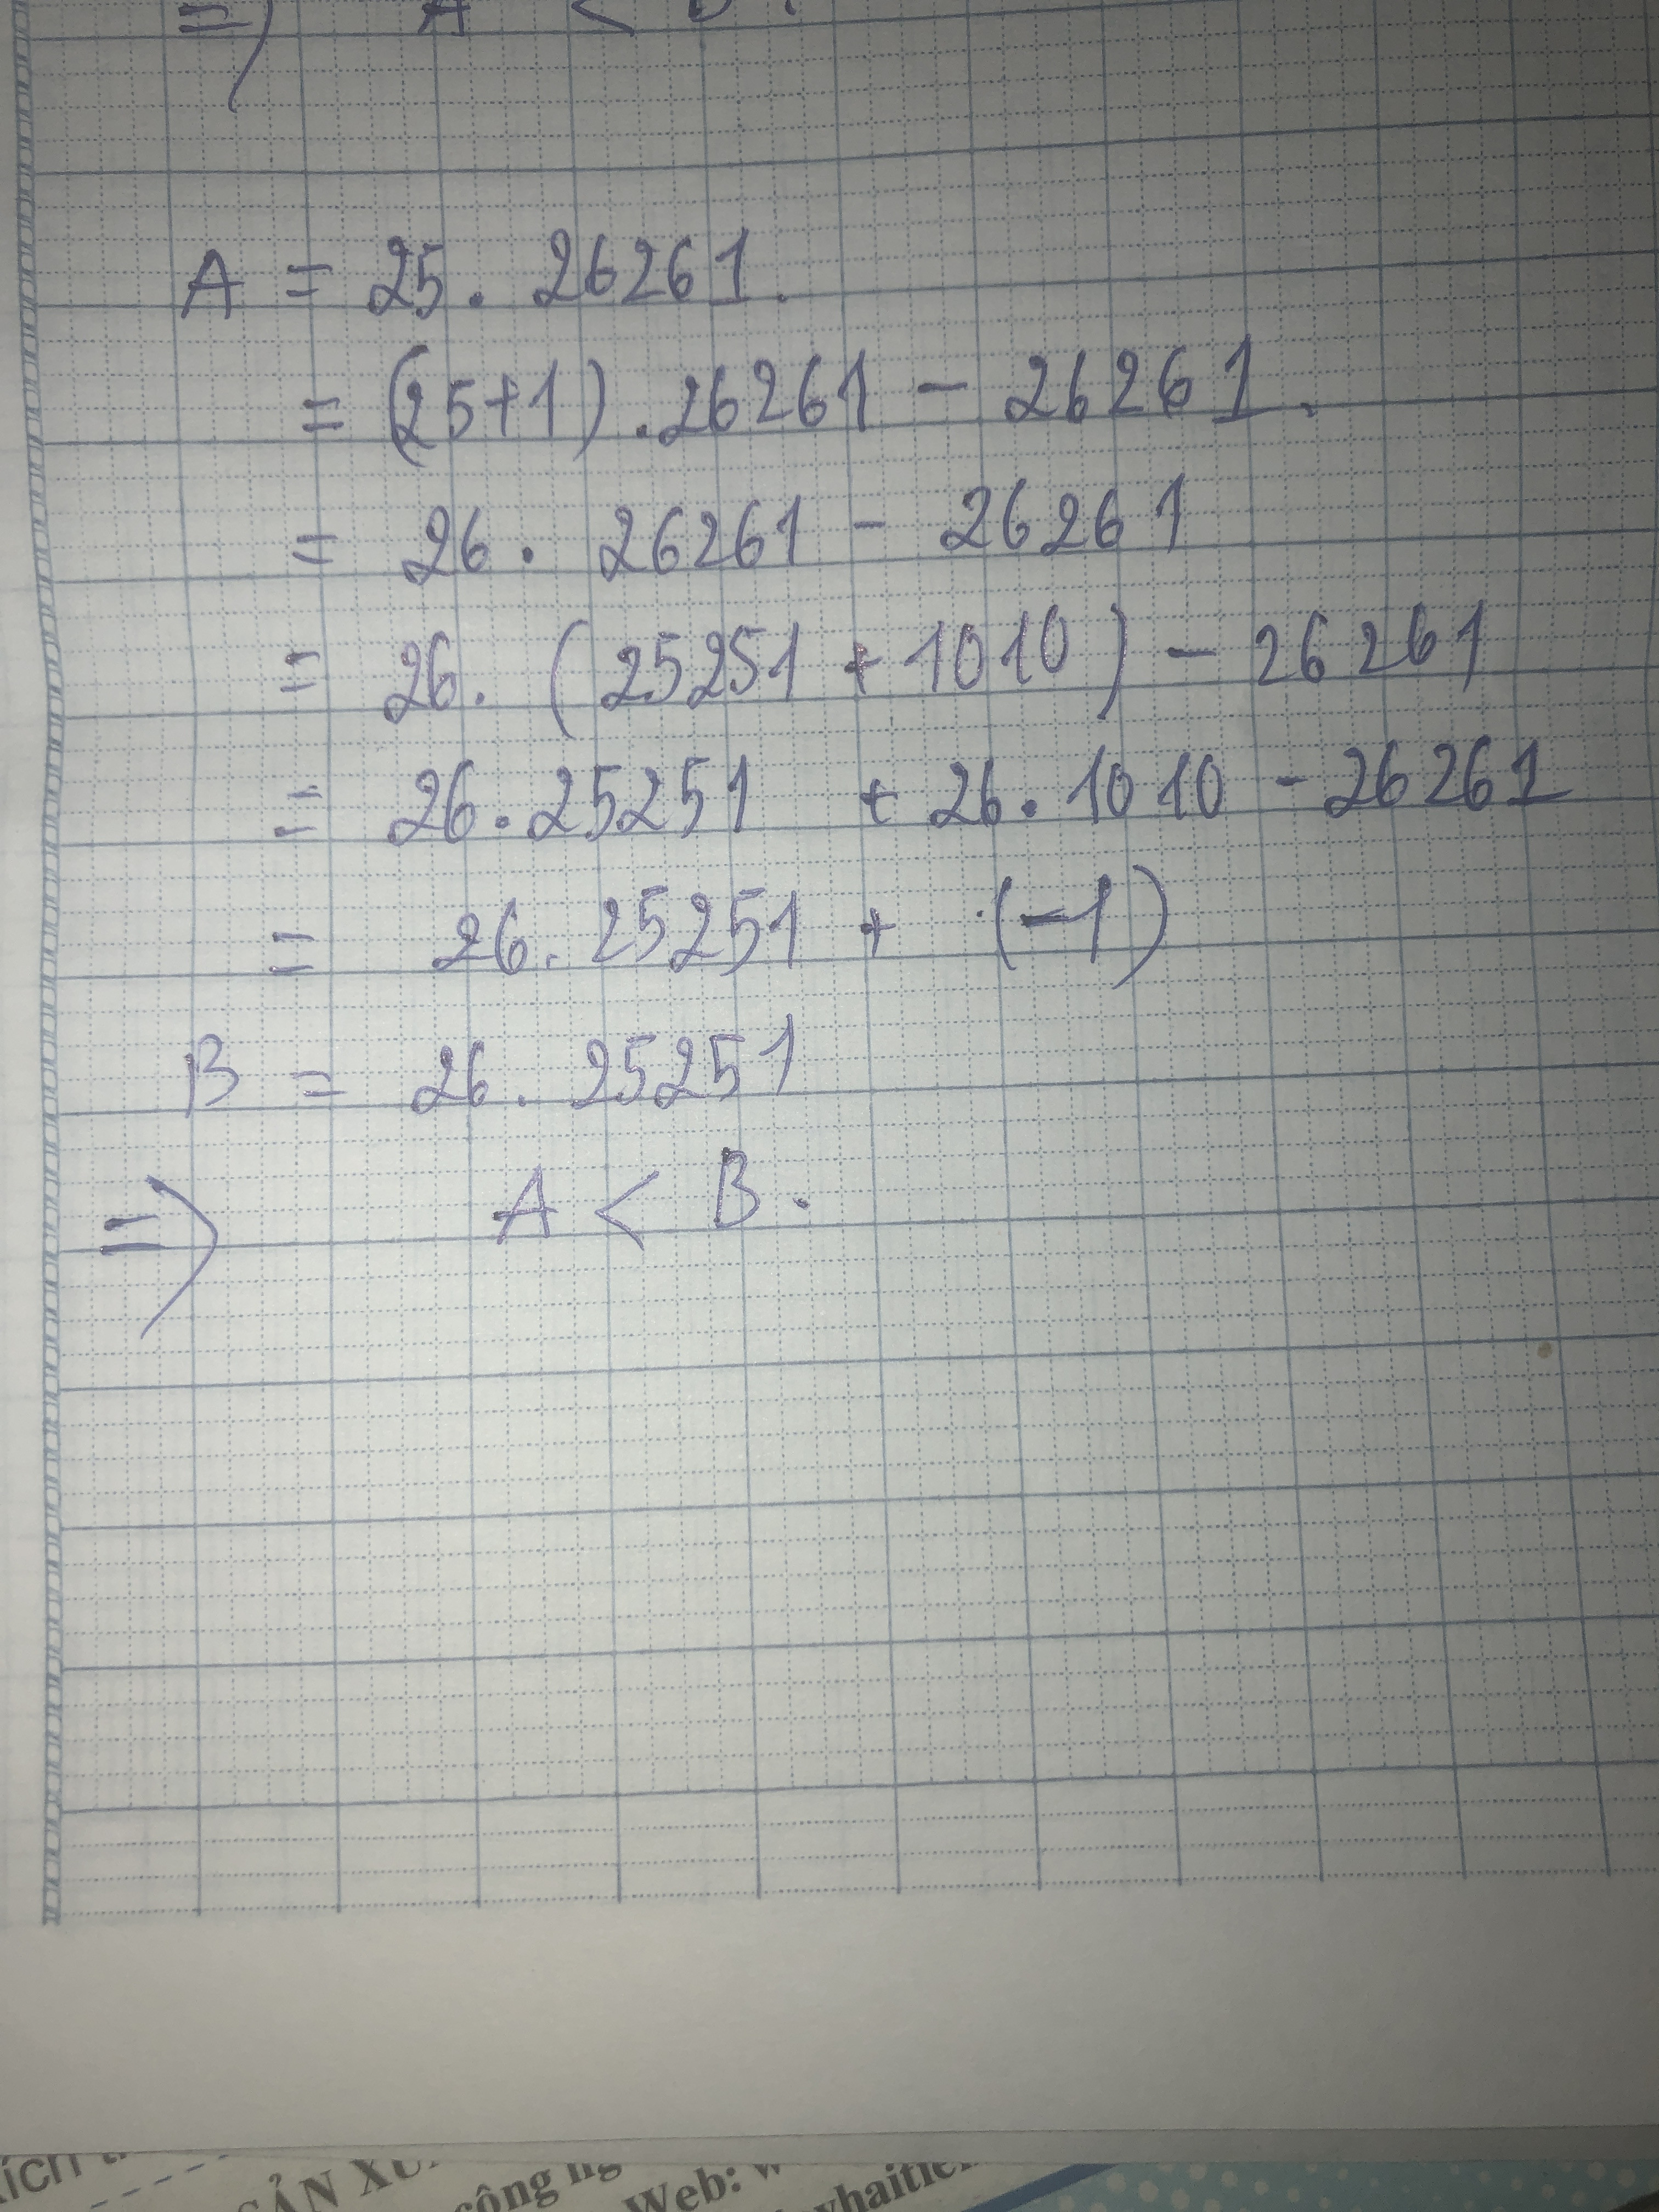 => A <
A = 25. 26261.
= (25+1).26261 - 26261.
= 26. 26261 - 26261
= 26. (25251 + 1010) - 26261
= 26.25251 + 26.1010 - 26261
= 26. 25251 + (-1)
B = 26. 25251
=> A < B.
SẢN
công
Web: